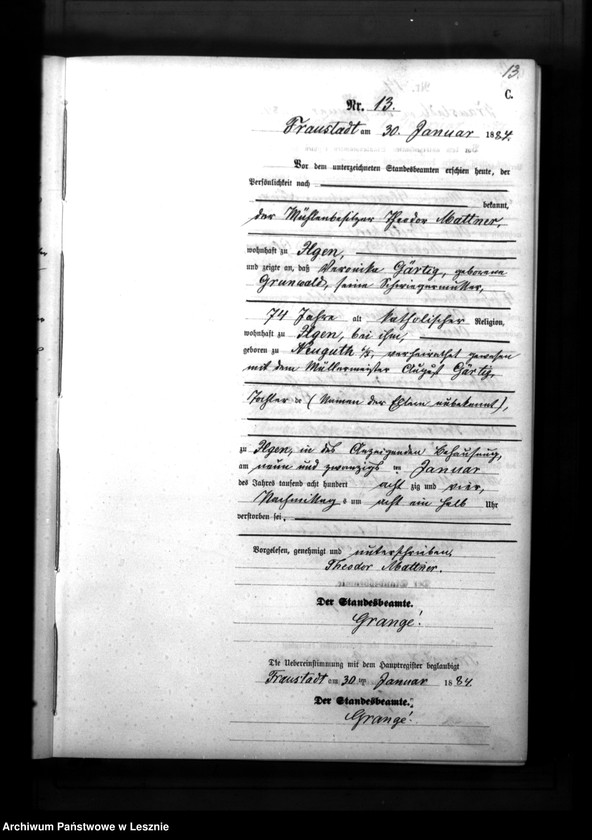 13.
C.
Nr. 13.
Fraustadt am 30. Januar 1884.
Vor dem unterzeichneten Standesbeamten erschien heute, der
Persönlichkeit nach
bekannt,
der Mühlenbesitzer Theodor Mattner,
wohnhaft zu Ilgen,
und zeigte an, daß Veronika Gärtig, geborene
Grunwald, seine Schwiegermutter,
74 Jahre alt katholischer Religion,
wohnhaft zu Ilgen, bei ihm,
geboren zu Neuguth verheirathet gewesen
mit dem Müllermeister August Gärtig,
Tochter (Namen der Eltern unbekannt),
zu Ilgen, in des Anzeigenden Behausung,
am neun und zwanzigs ten Januar
des Jahres tausend acht hundert acht zig und vier,
Nachmittag s um acht ein halb Uhr
verstorben sei.
Vorgelesen, genehmigt und unterschrieben.
Theodor Mattner.
Der Standesbeamte.
Grangé.
Die Uebereinstimmung mit dem Hauptregister beglaubigt
Fraustadt am 30. ten Januar 1884.
Der Standesbeamte.
Grangé.
Archiwum Państwowe w Lesznie